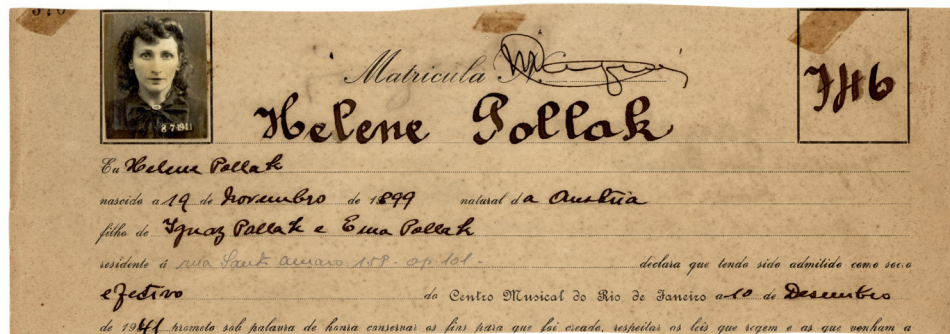 370
8-7-1941
Matricula N.
746
Helene Pollak
Eu Helene Pollak
nascido a 19 de Novembro de 1899 natural da Austria
filho de Ignaz Pollak e Ema Pollak
residente á rua Santo Amaro 158 - ap 101 - declara que tendo sido admitido como socio
efectivo do Centro Musical do Rio de Janeiro a 10 de Desembro
de 1941 prometo sob palavra de honra conservar os fins para que foi creado, respeitar os leis que regem e as que venham a